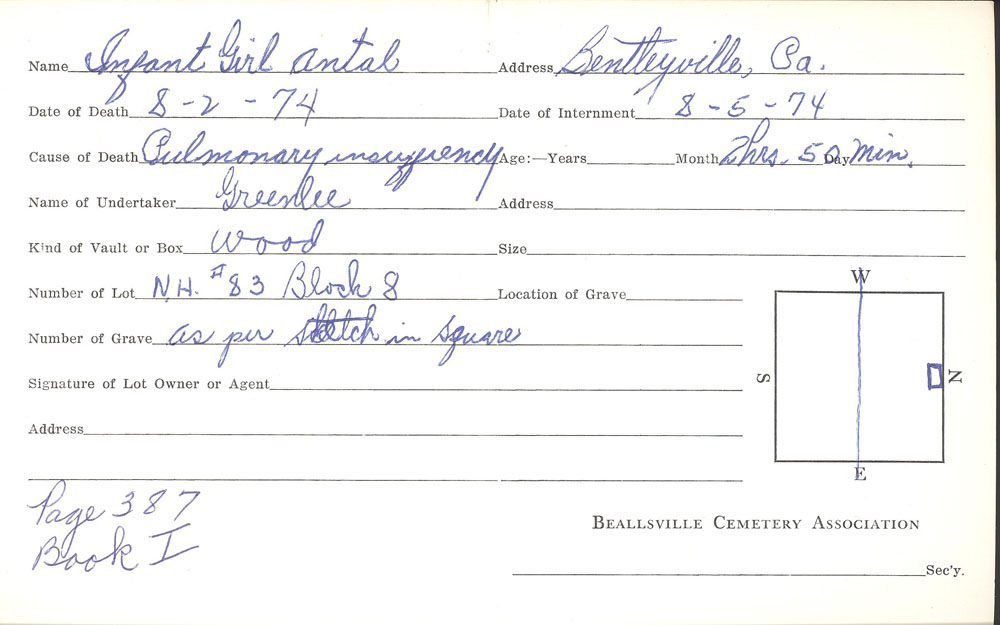 Name Infant Girl Antal Address Bentleyville, Pa.
Date of Death 8-2-74 Date of Internment 8-5-74
Cause of Death Pulmonary insuffiency Age:—Years Month 2hrs. 50 Day Min.
Name of Undertaker Greenlee Address
Kind of Vault or Box Wood Size
Number of Lot N.H. #83 Block 8 Location of Grave
W
Number of Grave as per sketch in square
S N
Signature of Lot Owner or Agent
Address
E
Page 387
Book I
Beallsville Cemetery Association
Sec'y.